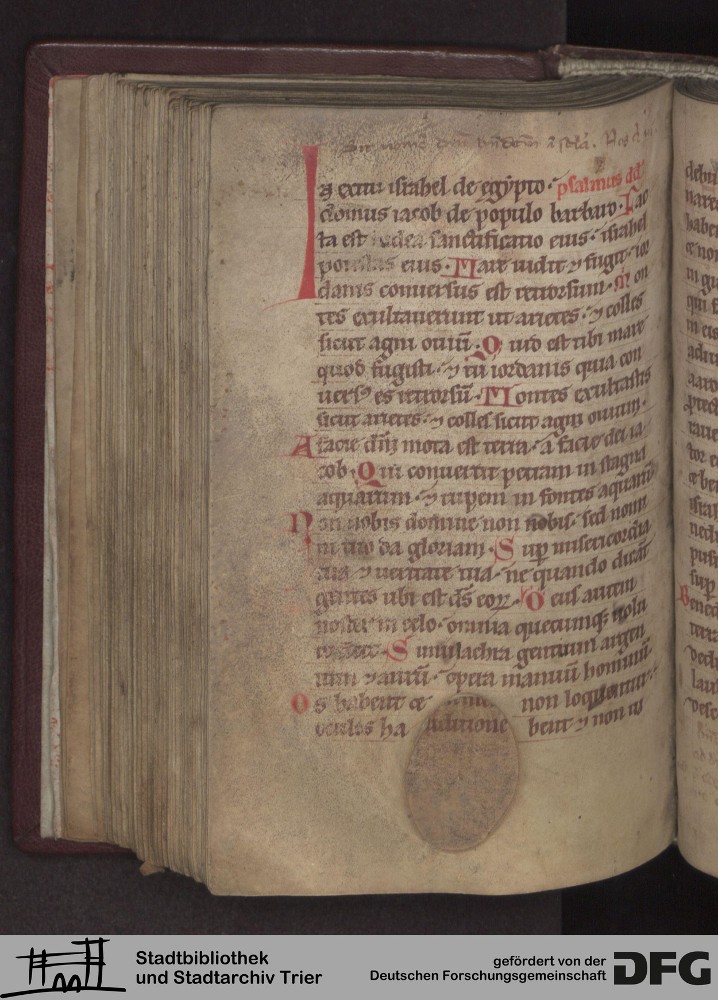 sit nomen
In exitu israhel de egypto · psalmus dd
domus iacob de populo barbaro · Fac
ta est iudea sanctificatio eius · israhel
potestas eius · Mare uidit ⁊ fugit · ior
danis conuersus est retrorsum · Mon
tes exultauerunt ut arietes · ⁊ colles
sicut agni ouiū · Quid est tibi mare
quod fugisti · ⁊ tu iordanis quia con
uersꝰ es retrorsū · Montes exultastis
sicut arietes · ⁊ colles sicut agni ouium ·
A facie dn̄i mota est terra · a facie dei ia
cob · Qui conuertit petram in stagna
aquarum · ⁊ rupem in fontes aquarū
Non nobis domine non nobis · sed nomi
ni tuo da gloriam · Sup misericordia
tua ⁊ ueritate tua · ne quando dicāt
gentes ubi est ds̄ eoꝝ · Deus autem
noster in celo · omnia quecumqꝫ uolu
Simulachra gentium argen
tum ⁊ aurū · opera manuū hominū
Os habent ⁊ non loquentur ·
oculos ha bent ⁊ non ui
Stadtbibliothek
und Stadtarchiv Trier
gefördert von der
Deutschen Forschungsgemeinschaft
DFG